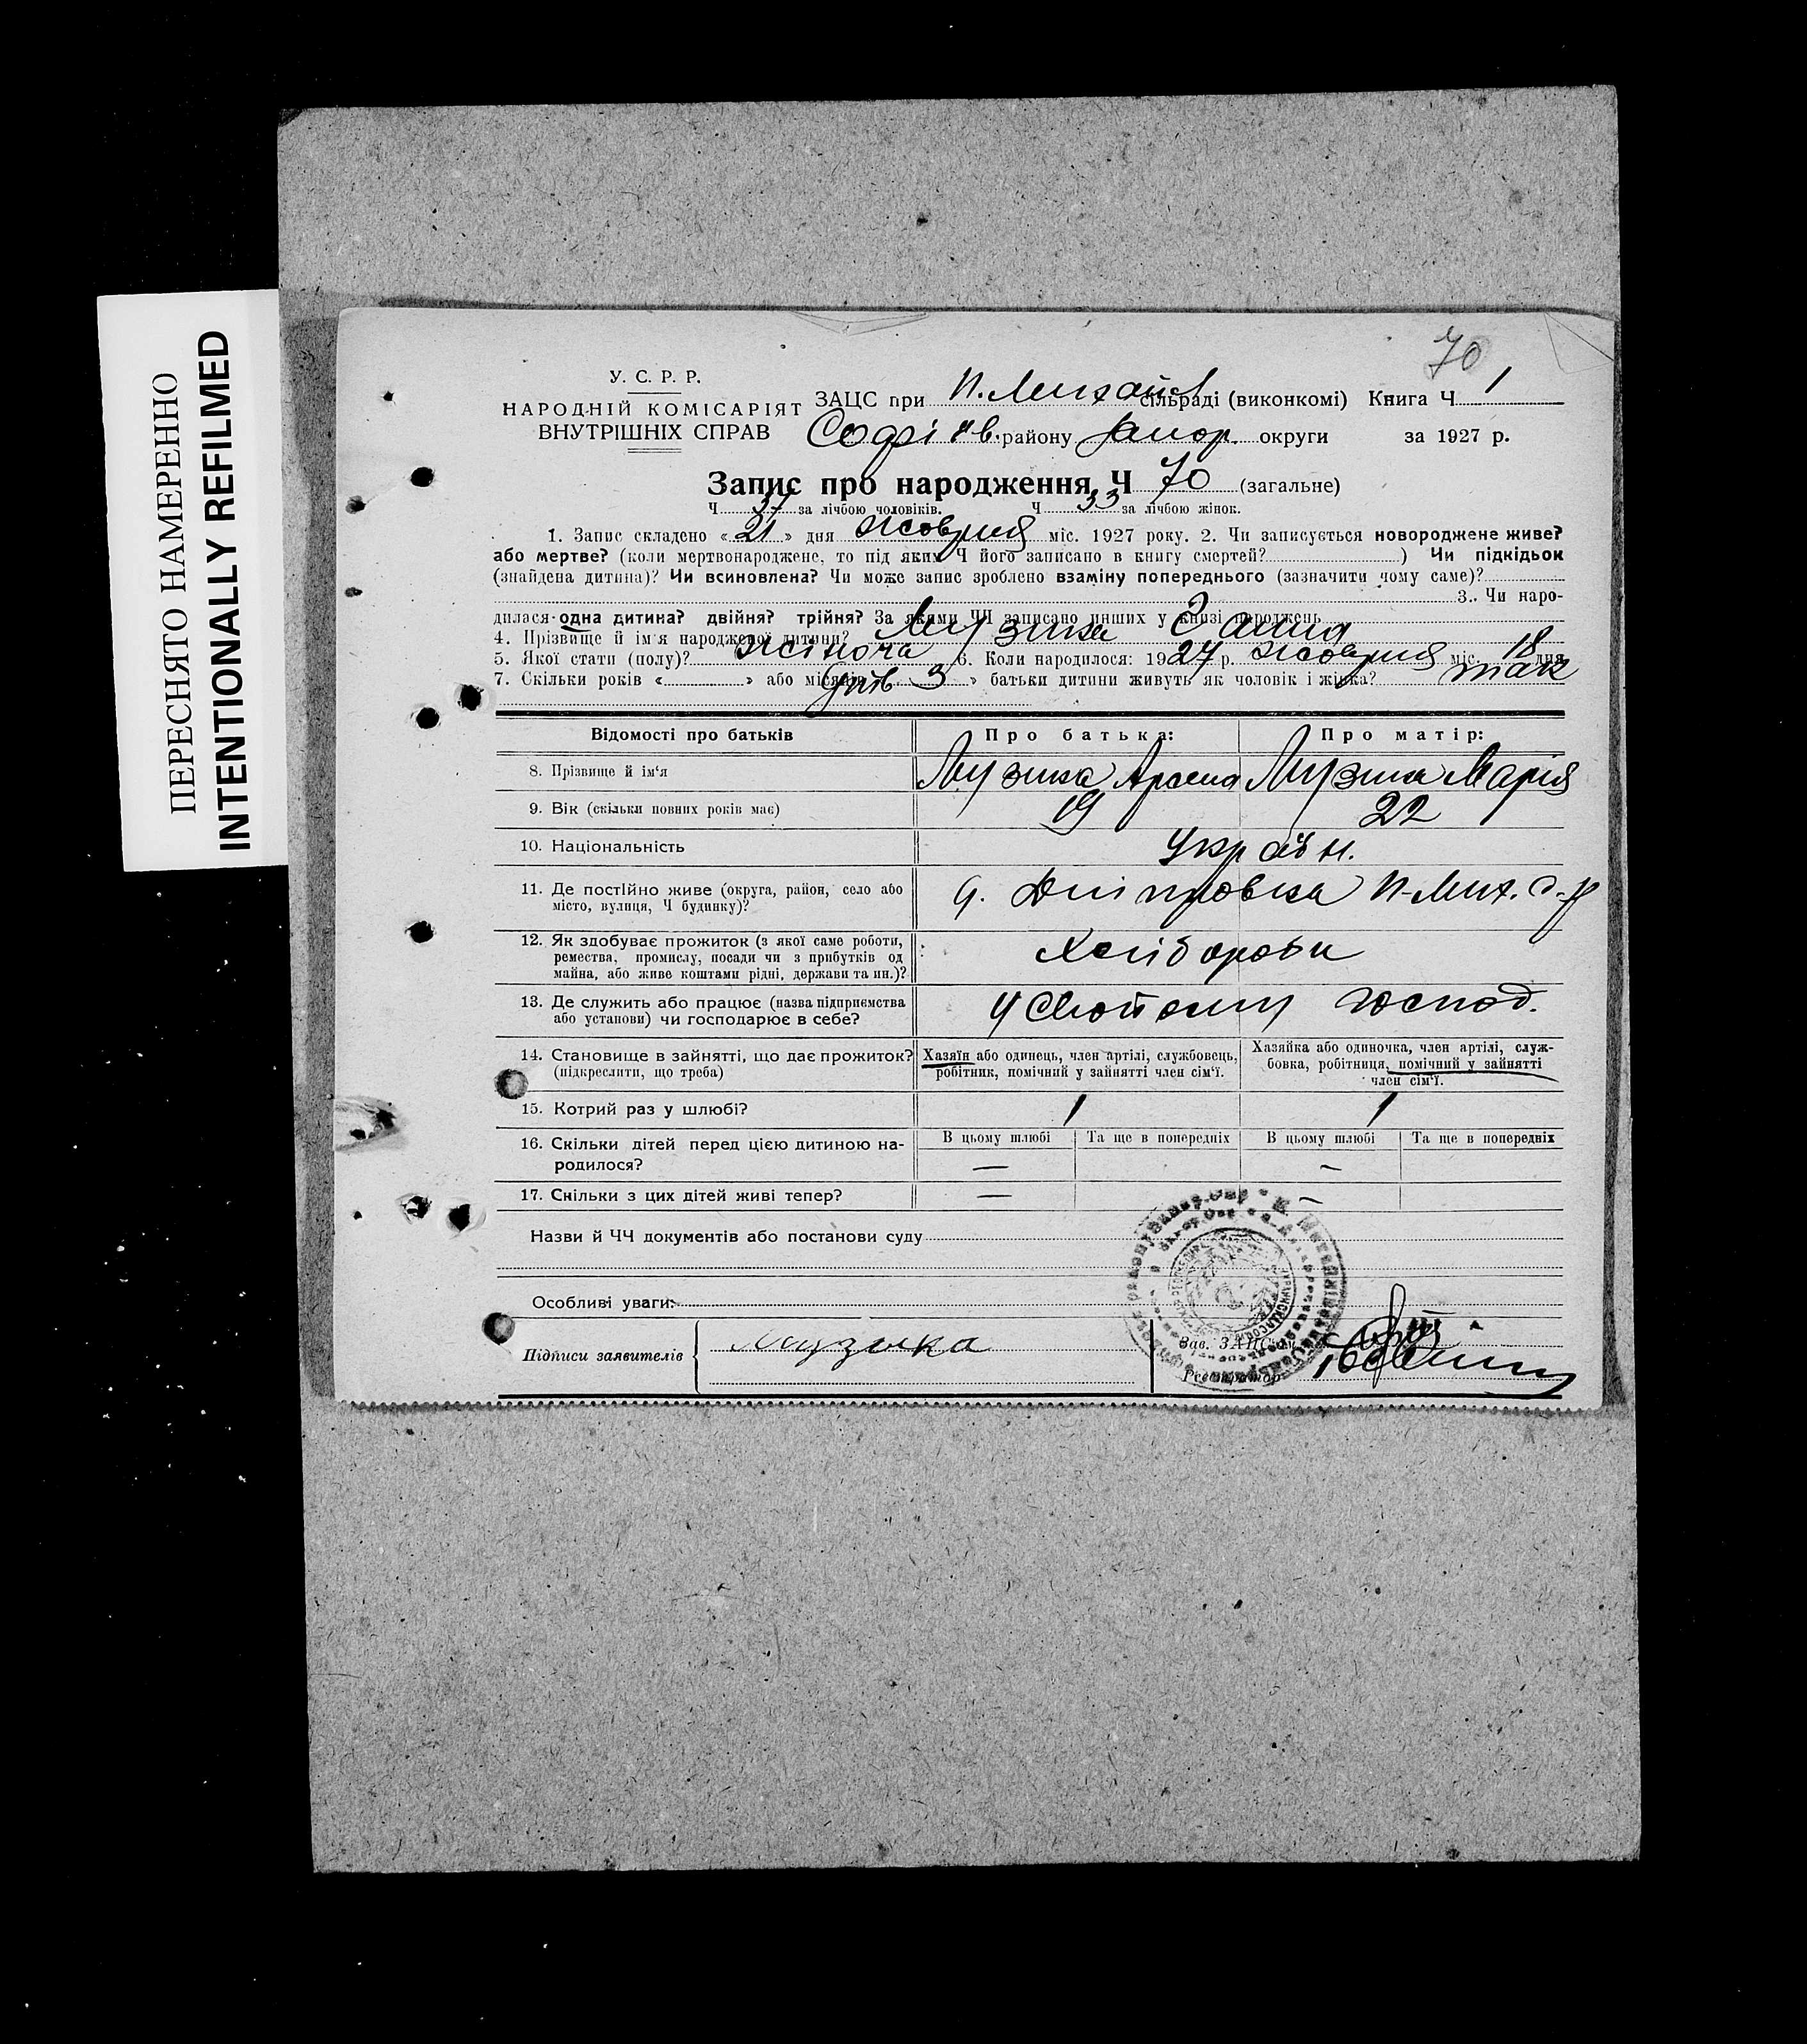 ПЕРЕСНЯТО НАМЕРЕННО
INTENTIONALLY REFILMED
70
У. С. Р. Р.
НАРОДНІЙ КОМІСАРІЯТ
ВНУТРІШНІХ СПРАВ
ЗАЦС при Н. Михайл сільраді (виконкомі) Книга Ч 1
Софіїв. району Запор. округи за 1927 р.
Запис про народження Ч 70 (загальне)
Ч 37 за лічбою чоловіків. Ч 33 за лічбою жінок.
1. Запис складено « 21 » дня жовтня міс. 1927 року. 2. Чи записується новороджене живе?
або мертве? (коли мертвонароджене, то під яким Ч його записано в книгу смертей? ) Чи підкідьок
(знайдена дитина)? Чи всиновлена? Чи може запис зроблено взаміну попереднього (зазначити чому саме)?
3. Чи наро-
дилася одна дитина? двійня? трійня? За якими ЧЧ записано инших у книзі народжень
4. Прізвище й ім'я народженої дитини? Музика Ганна
5. Якої стати (полу)? жіноча 6. Коли народилося: 1927 р. жовтня міс. 18 дня
7. Скільки років « » або місяців 3 » батьки дитини живуть як чоловік і жінка? так
Відомості про батьків Про батька: Про матір:
8. Прізвище й ім'я Музика Музика Марія
9. Вік (скільки повних років має) 19 22
10. Національність україн.
11. Де постійно живе (округа, район, село або
місто, вулиця, Ч будинку)? Дніпровка Н-Мих. с-р
12. Як здобуває прожиток (з якої саме роботи,
ремества, промислу, посади чи з прибутків од
майна, або живе коштами рідні, держави та ин.)? Хлібороби
13. Де служить або працює (назва підприємства
або установи) чи господарює в себе? у своїому господ.
14. Становище в зайнятті, що дає прожиток?
(підкреслити, що треба)
Хазяїн або одинець, член артілі, службовець,
робітник, помічний у зайнятті член сім'ї.
Хазяйка або одиночка, член артілі, служ-
бовка, робітниця, помічний у зайнятті
член сім'ї.
15. Котрий раз у шлюбі? 1 1
16. Скільки дітей перед цією дитиною на-
родилося?
В цьому шлюбі Та ще в попередніх В цьому шлюбі Та ще в попередніх
— —
17. Скільки з цих дітей живі тепер? — —
Назви й ЧЧ документів або постанови суду
Особливі уваги:
Підписи заявителів Музыка
Зав. ЗАЦС'ом
Реєстратор